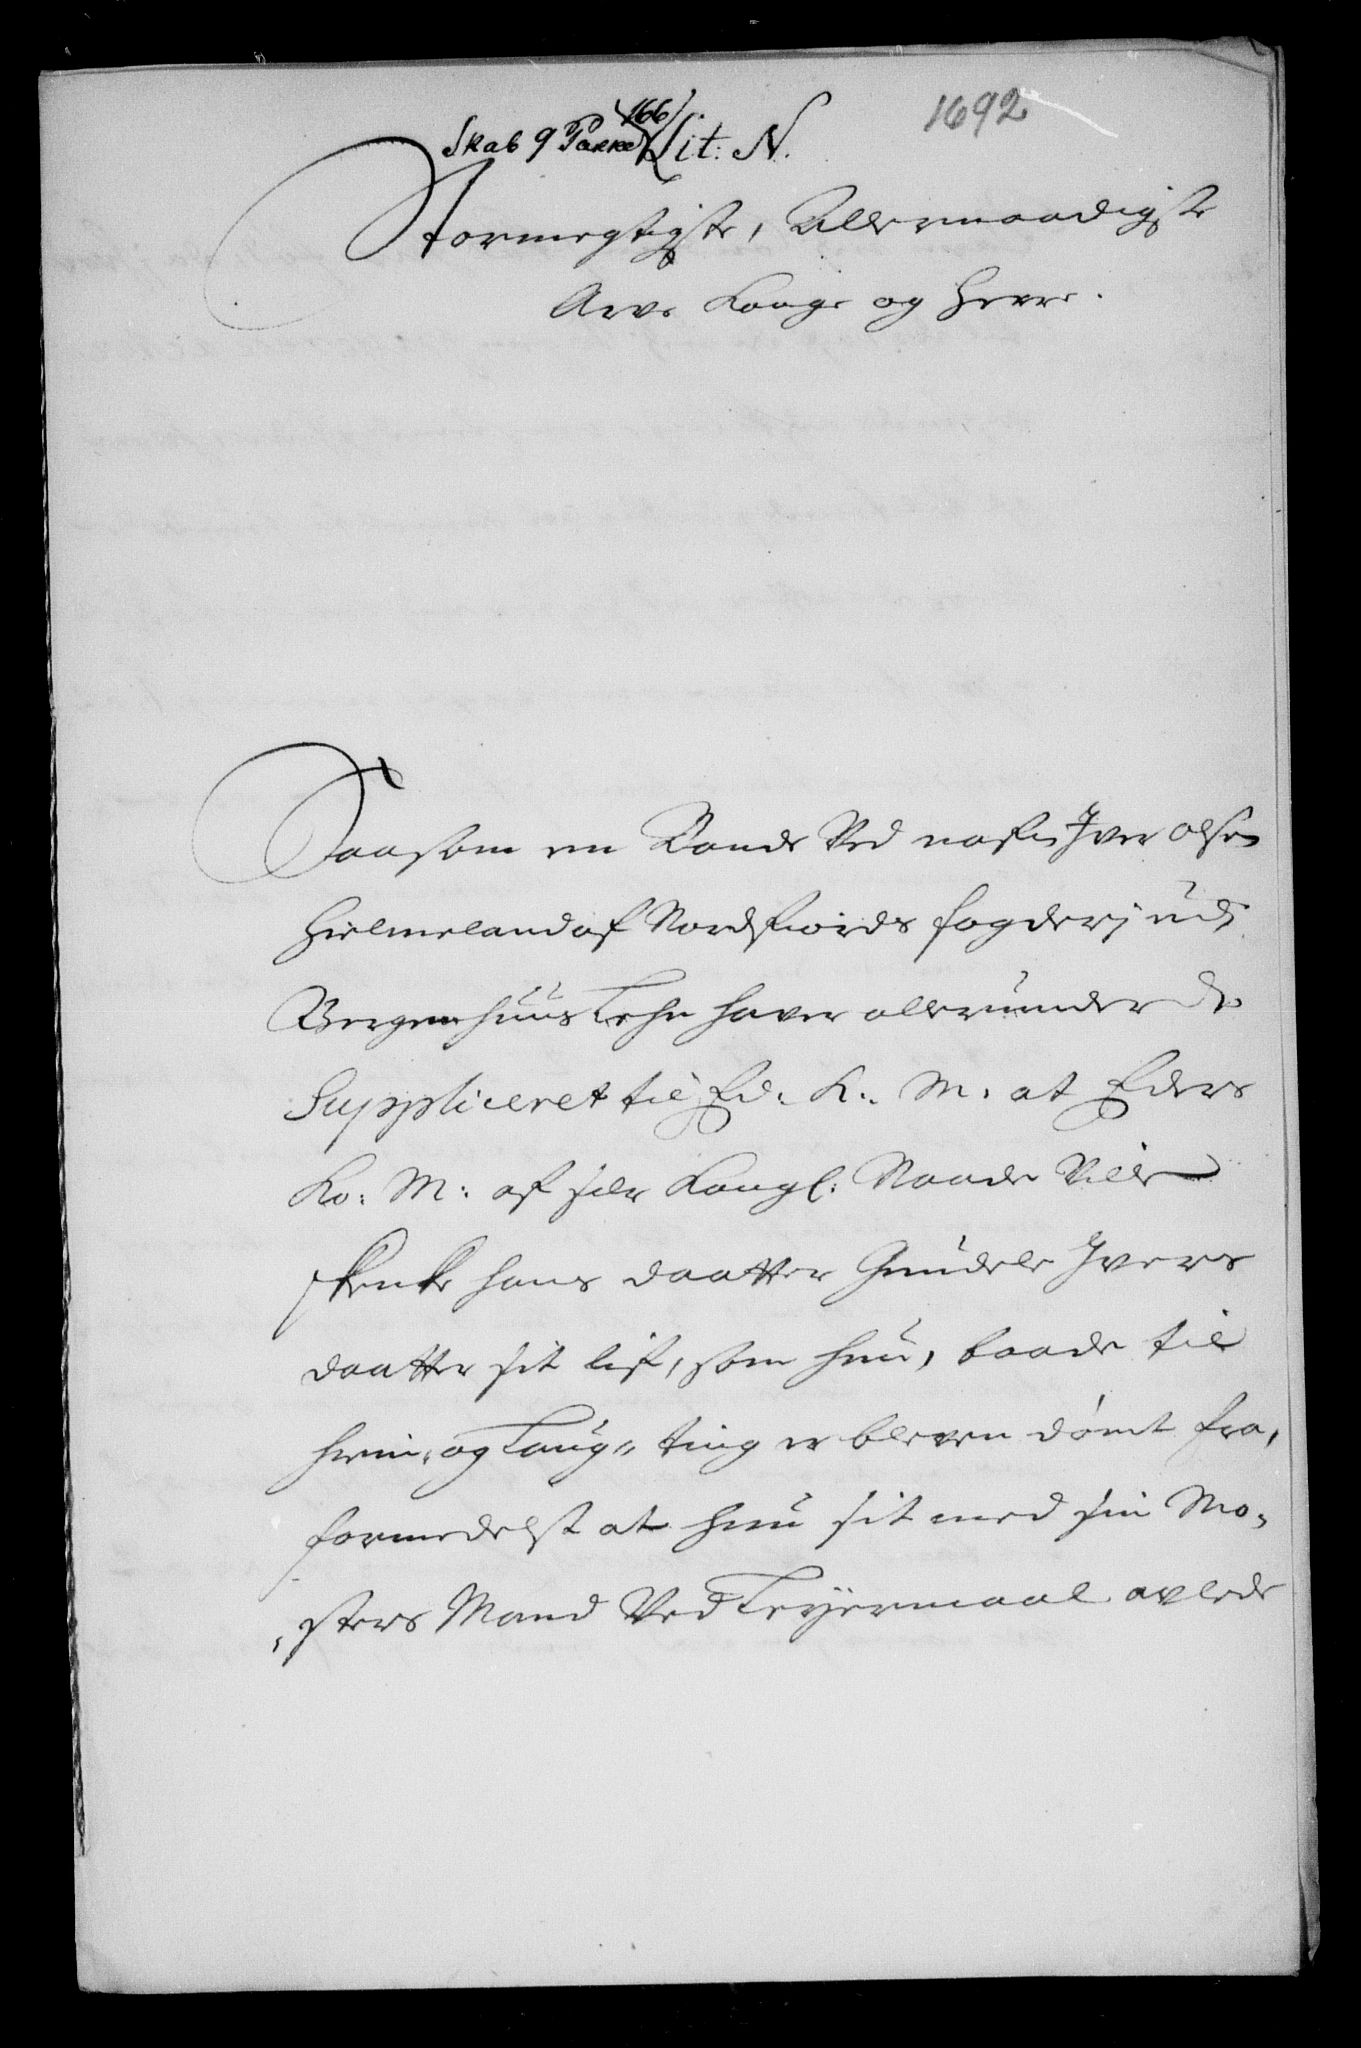 1692
Skab 9 Pakke 166 Lit: N.
Stormegtigste, Allernaadigste
Arve Konge og Herre.
Saasom en Bonde Ved nafn Iver Olsen
Hielmeland af Nordfiords fogderj udj
Bergenhuus Lehn haver allerunderd.
Suppliceret til Ed. K. M. at Eders
Ko: M: af sær Kongl: Naade Ville
skenke hans daatter Gundele Ivers
daatter sit lif, som hun, baade til
Hiem, og Laug- ting er bleven dømt fra,
formedelst at hun sit med sin Mo-
sters Mand Ved Leyermaal avlede